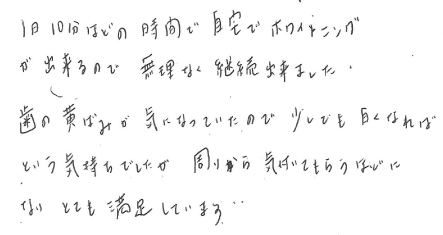 1日10分ほどの時間で自宅でホワイトニング
が出来るので無理なく継続出来ました.
歯の黄ばみが気になっていたので少しでも白くなれば
という気持ちでしたが周りから気付いてもらうほどに
なり とても満足しています‥